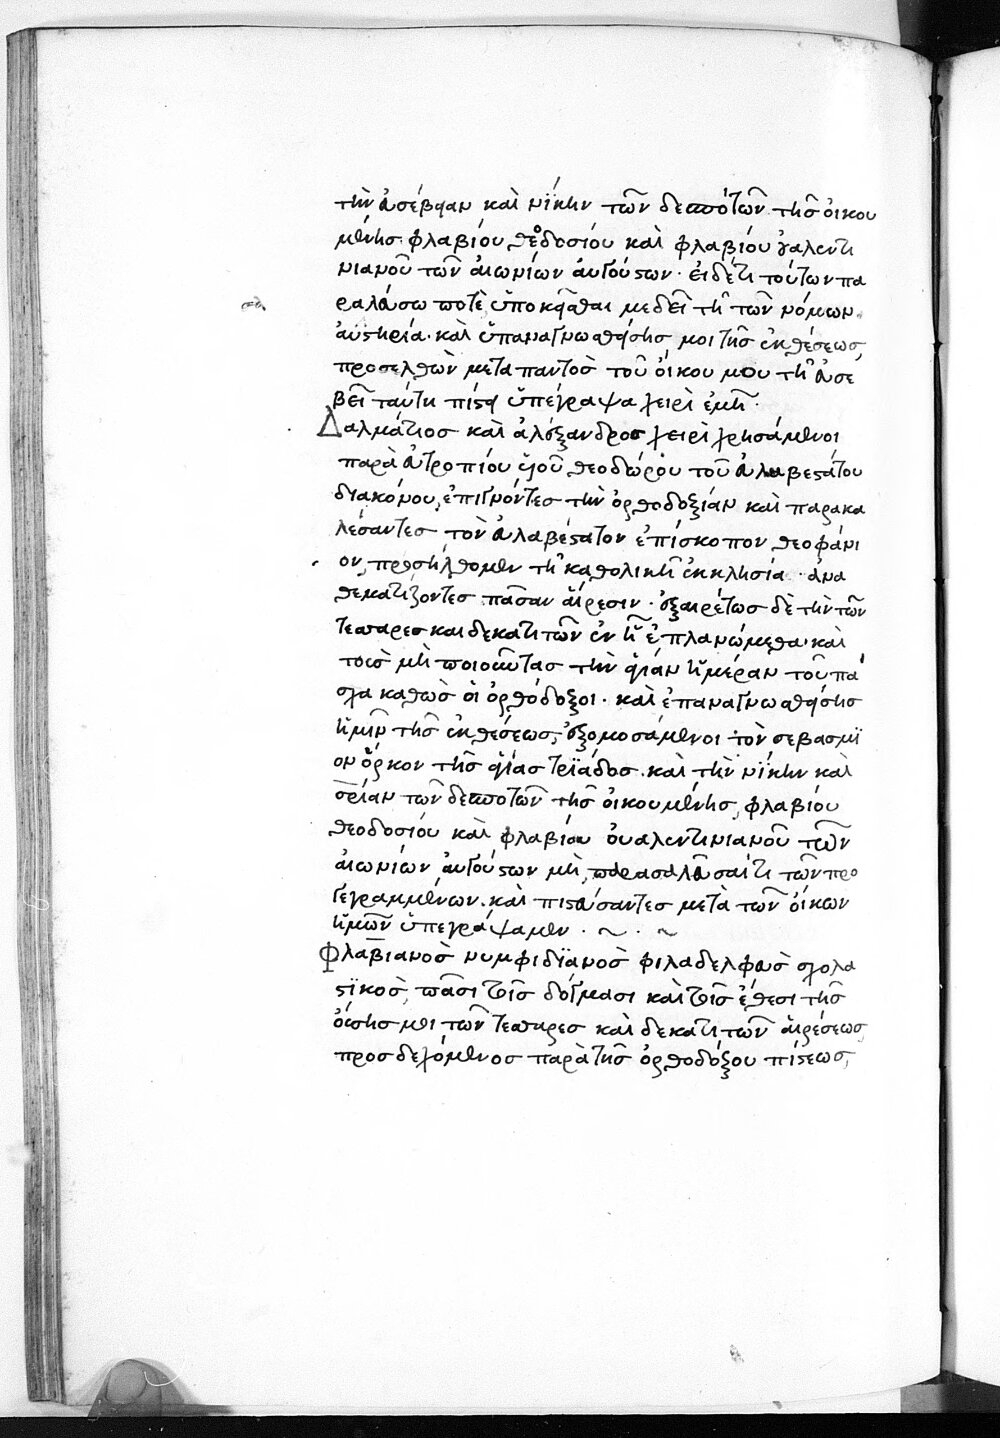 τὴν εὐσέβειαν καὶ νίκην τῶν δεσποτῶν τῆς οἰκου
μένης φλαβίου θεοδοσίου καὶ φλαβίου οὐαλεντι
νιανοῦ τῶν αἰωνίων αὐγούστων· εἰ δέ τι τούτων πα
ραλεύσω ποτὲ ὑποκεῖσθαι με δεῖ τῆ τῶν νόμων
αὐστηρία· καὶ ὑπαναγνωσθείσης μοι τῆς ἐκθέσεως,
προσελθὼν μετα παντὸς τοῦ οἴκου μου τῆ εὐσε
βεῖ ταύτη πίστει ὑπέγραψα χειρὶ ἐμῆ·
Δαλμάτιος καὶ ἀλέξανδρος χειρὶ χρησάμενοι
παρὰ εὐτροπίου υἱοῦ θεοδώρου τοῦ εὐλαβεστάτου
διακόνου, ἐπιγνόντες τὴν ὀρθοδοξίαν καὶ παρακα
λέσαντες τὸν εὐλαβέστατον ἐπίσκοπον θεοφάνι
ον, προσήλθομεν τῆ καθολικῆ ἐκκλησία· ἀνα
θεματίζοντες πᾶσαν αἵρεσιν· ἐξαιρέτως δὲ τὴν τῶν
τεσσαρες και δεκατιτῶν ἐν ἧ ἐπλανώμεθα· καὶ
τοὺς μὴ ποιοῦντας τὴν ἁγίαν ἡμέραν τοῦ πά
σχα καθὼς οἱ ὀρθόδοξοι· καὶ ἐπαναγνωσθείσης
ἡμῖν τῆς ἐκθέσεως, ἐξομοσάμενοι τὸν σεβασμϊ
ον ὅρκον τῆς ἁγίας τριάδος· καὶ τὴν νίκην καὶ
σρίαν τῶν δεσποτῶν τῆς οἰκουμένης, φλαβίου
θεοδοσίου καὶ φλαβίου οὐαλεντινιανοῦ τῶν
αἰωνίων αὐγούστων μὴ παρασαλεῦσαί τι τῶν προ
γεγραμμένων· καὶ πιστεύσαντες μετὰ τῶν οἴκων
ἡμῶν ὑπεγράψαμεν· ~ · ~
Φλαβιανὸς νυμφιδϊανὸς φιλαδελφεὺς σχολα
στικὸς, πᾶσι τοῖς δόγμασι καὶ τοῖς ἔθεσι τῆς
οὔσης μοι τῶν τεσσαρες καὶ δεκατιτῶν αἱρέσεως,
προσδεχόμενος παρὰ τῆς ὀρθοδόξου πίστεως,